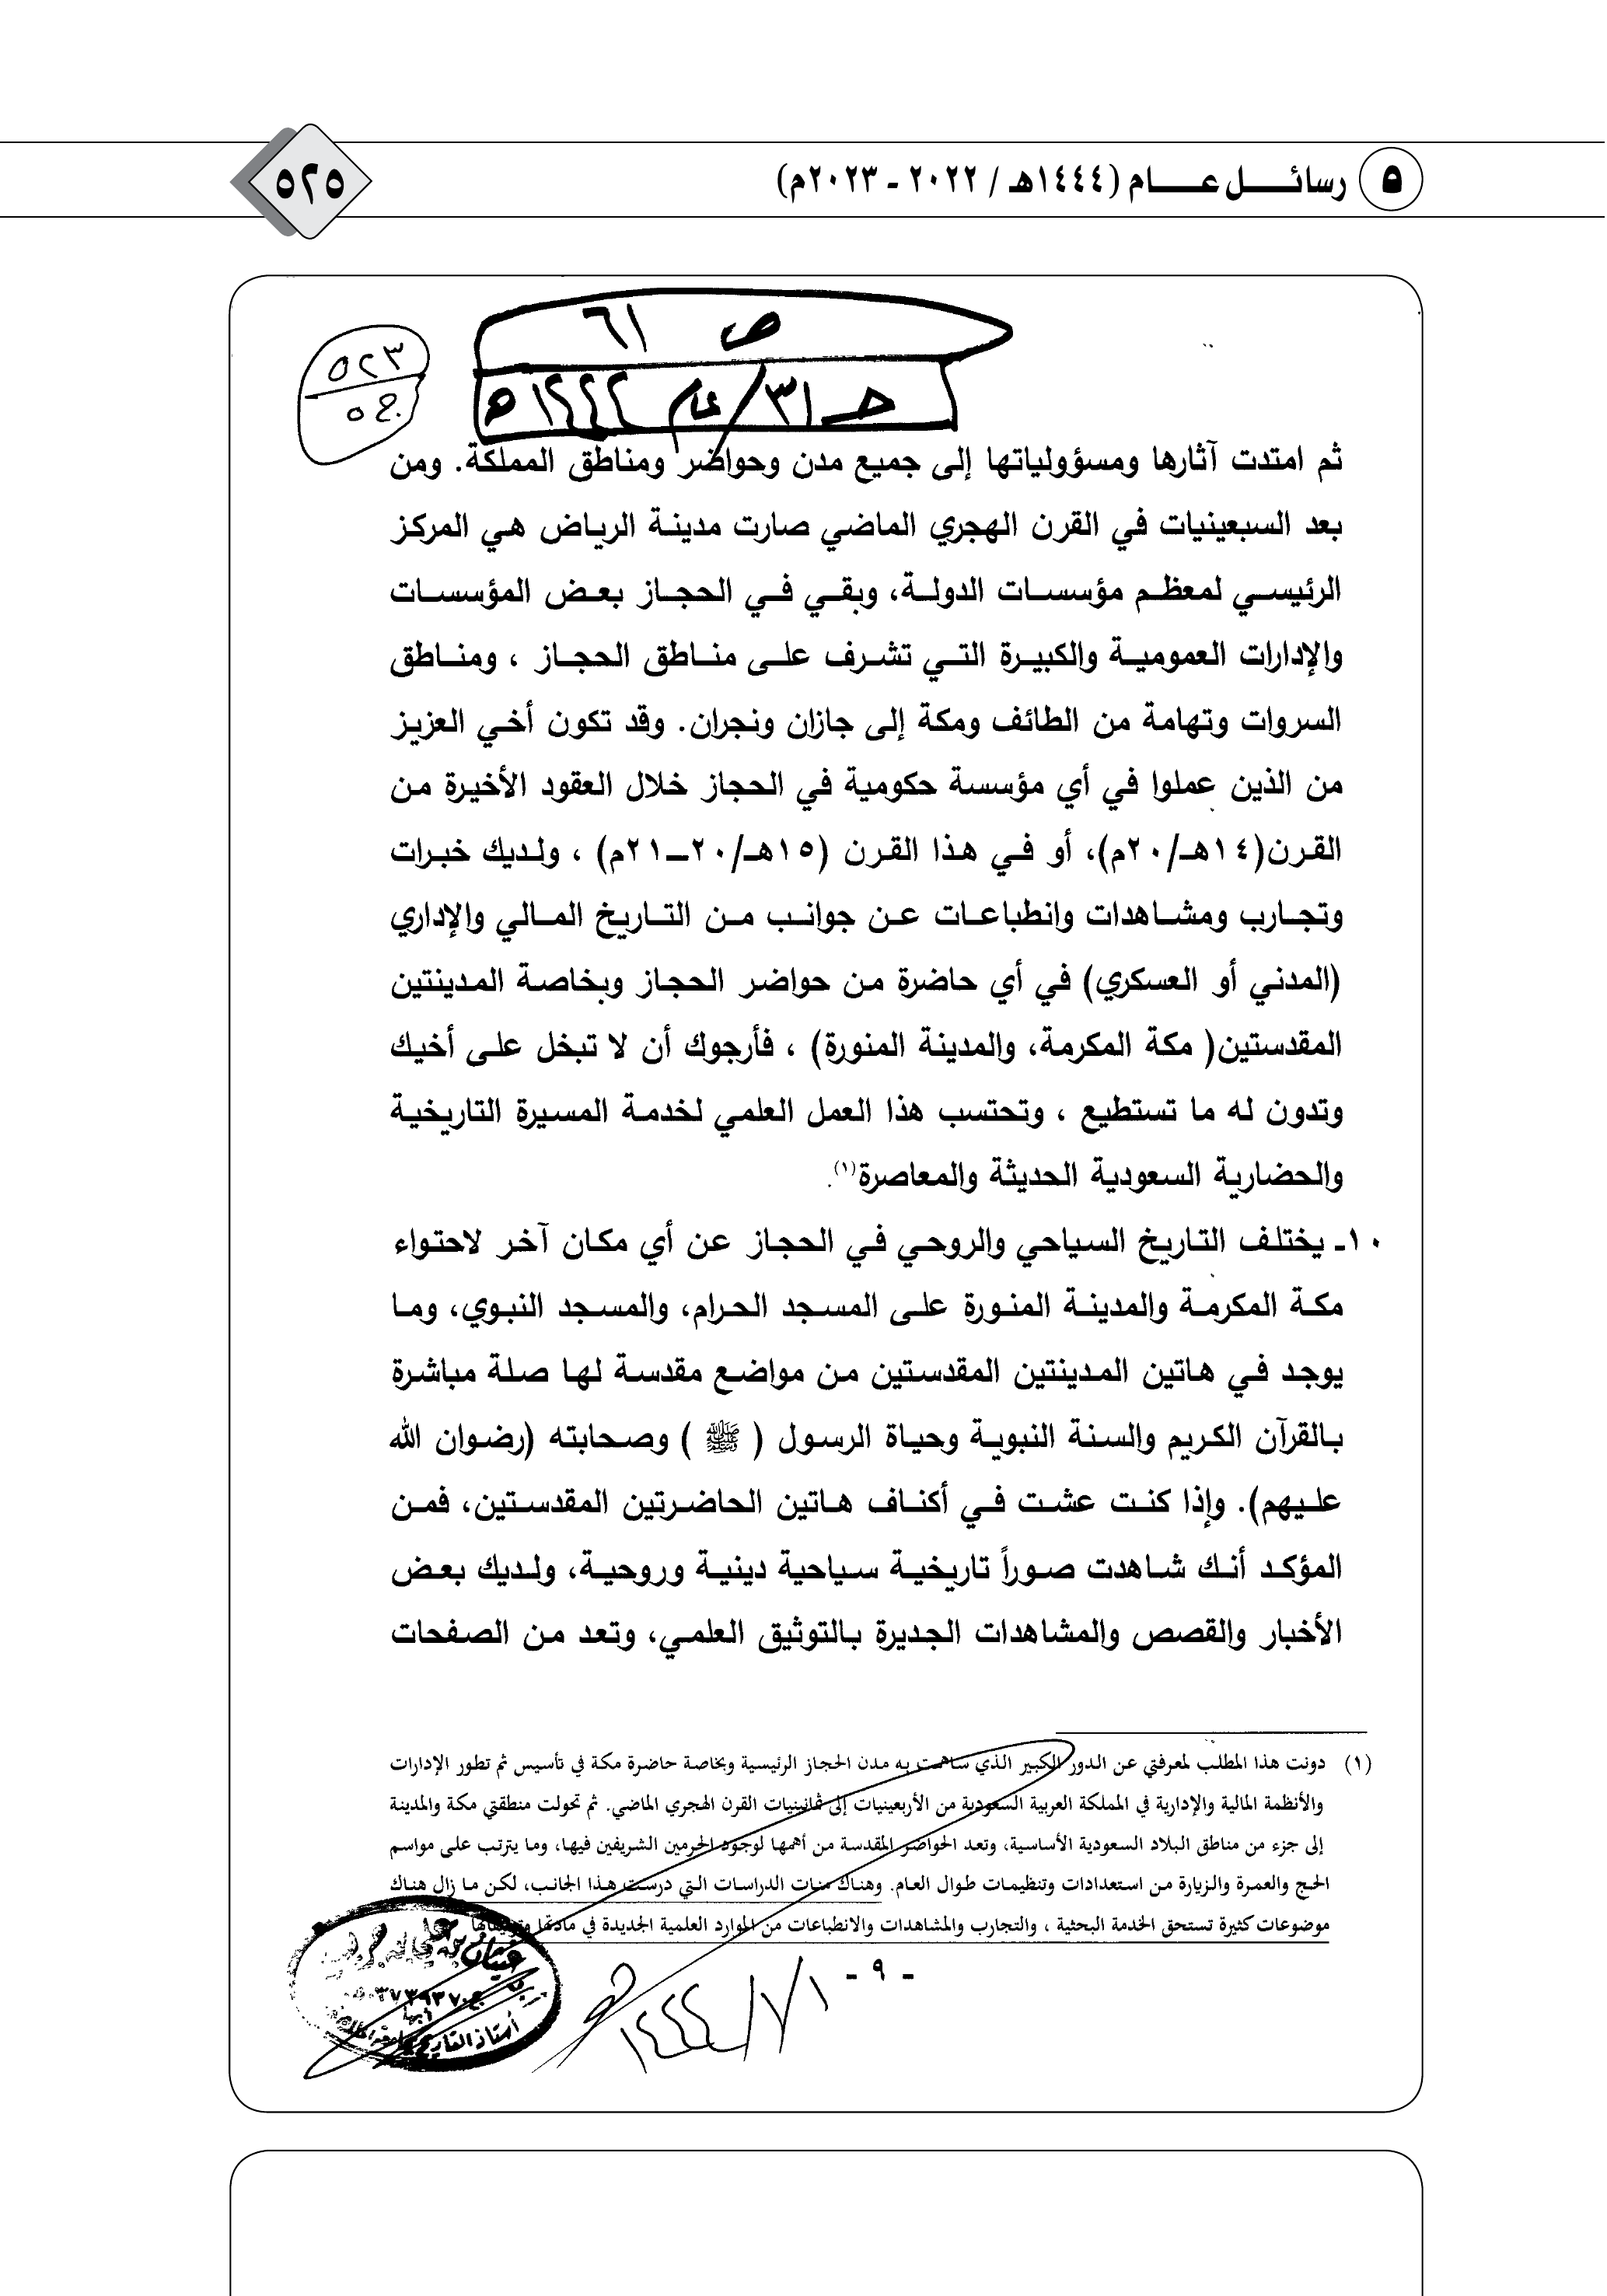 ٥ رسائل عام (١٤٤٤هـ / ٢٠٢٢ - ٢٠٢٣م)
٥٢٥
ص ٦١
حـ ٣١ / عام ١٤٤٤هـ
٥٢٣
ج ٥
ثم امتدت آثارها ومسؤولياتها إلى جميع مدن وحواضر ومناطق المملكة. ومن
بعد السبعينيات في القرن الهجري الماضي صارت مدينة الرياض هي المركز
الرئيسي لمعظم مؤسسات الدولة، وبقي في الحجاز بعض المؤسسات
والإدارات العمومية والكبيرة التي تشرف على مناطق الحجاز ، ومناطق
السروات وتهامة من الطائف ومكة إلى جازان ونجران. وقد تكون أخي العزيز
من الذين عملوا في أي مؤسسة حكومية في الحجاز خلال العقود الأخيرة من
القرن(١٤هـ/٢٠م)، أو في هذا القرن (١٥هـ/٢٠-٢١م) ، ولديك خبرات
وتجارب ومشاهدات وانطباعات عن جوانب من التاريخ المالي والإداري
(المدني أو العسكري) في أي حاضرة من حواضر الحجاز وبخاصة المدينتين
المقدستين( مكة المكرمة، والمدينة المنورة) ، فأرجوك أن لا تبخل على أخيك
وتدون له ما تستطيع ، وتحتسب هذا العمل العلمي لخدمة المسيرة التاريخية
والحضارية السعودية الحديثة والمعاصرة(١).
١٠- يختلف التاريخ السياحي والروحي في الحجاز عن أي مكان آخر لاحتواء
مكة المكرمة والمدينة المنورة على المسجد الحرام، والمسجد النبوي، وما
يوجد في هاتين المدينتين المقدستين من مواضع مقدسة لها صلة مباشرة
بالقرآن الكريم والسنة النبوية وحياة الرسول ( ﷺ ) وصحابته (رضوان الله
عليهم). وإذا كنت عشت في أكناف هاتين الحاضرتين المقدستين، فمن
المؤكد أنك شاهدت صوراً تاريخية سياحية دينية وروحية، ولديك بعض
الأخبار والقصص والمشاهدات الجديرة بالتوثيق العلمي، وتعد من الصفحات
(١) دونت هذا المطلب لمعرفتي عن الدور الكبير الذي ساهمت به مدن الحجاز الرئيسية وبخاصة حاضرة مكة في تأسيس ثم تطور الإدارات
والأنظمة المالية والإدارية في المملكة العربية السعودية من الأربعينيات إلى ثمانينيات القرن الهجري الماضي. ثم تحولت منطقتي مكة والمدينة
إلى جزء من مناطق البلاد السعودية الأساسية، وتعد الحواضر المقدسة من أهمها لوجود الحرمين الشريفين فيها، وما يترتب على مواسم
الحج والعمرة والزيارة من استعدادات وتنظيمات طوال العام. وهناك مئات الدراسات التي درست هذا الجانب، لكن ما زال هناك
موضوعات كثيرة تستحق الخدمة البحثية ، والتجارب والمشاهدات والانطباعات من الموارد العلمية الجديدة في مادتها
- ٩ -
١/٧/١٤٤٤هـ
أستاذ التاريخ